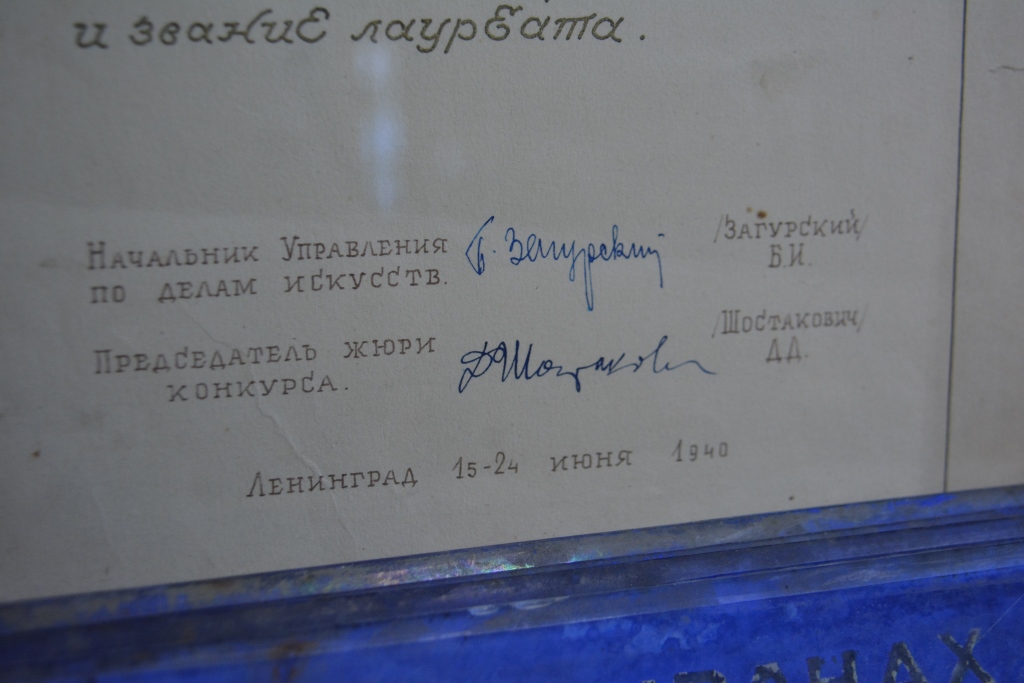 и звание лауреата.
Начальник Управления Б. Загурский /Загурский/
по делам искусств. Б.И.
Председатель жюри ДШостакович /Шостакович/
конкурса. Д.Д.
Ленинград 15-24 июня 1940